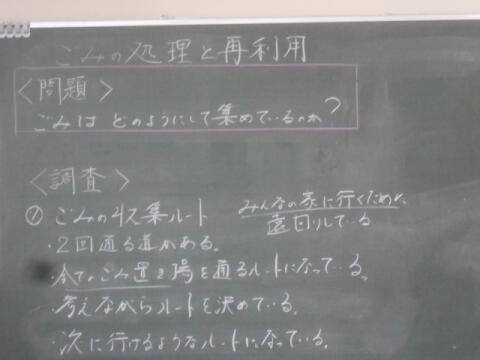 ごみの処理と再利用
〈問題〉
ごみは どのようにして集めているのか?
〈調査〉
① ごみの収集ルート
みんなの家に行くために、
遠回りしている
・2回通る道がある。
・全てのごみ置き場を通るルートになっている。
・考えながらルートを決めている。
・次に行けるようなルートになっている。